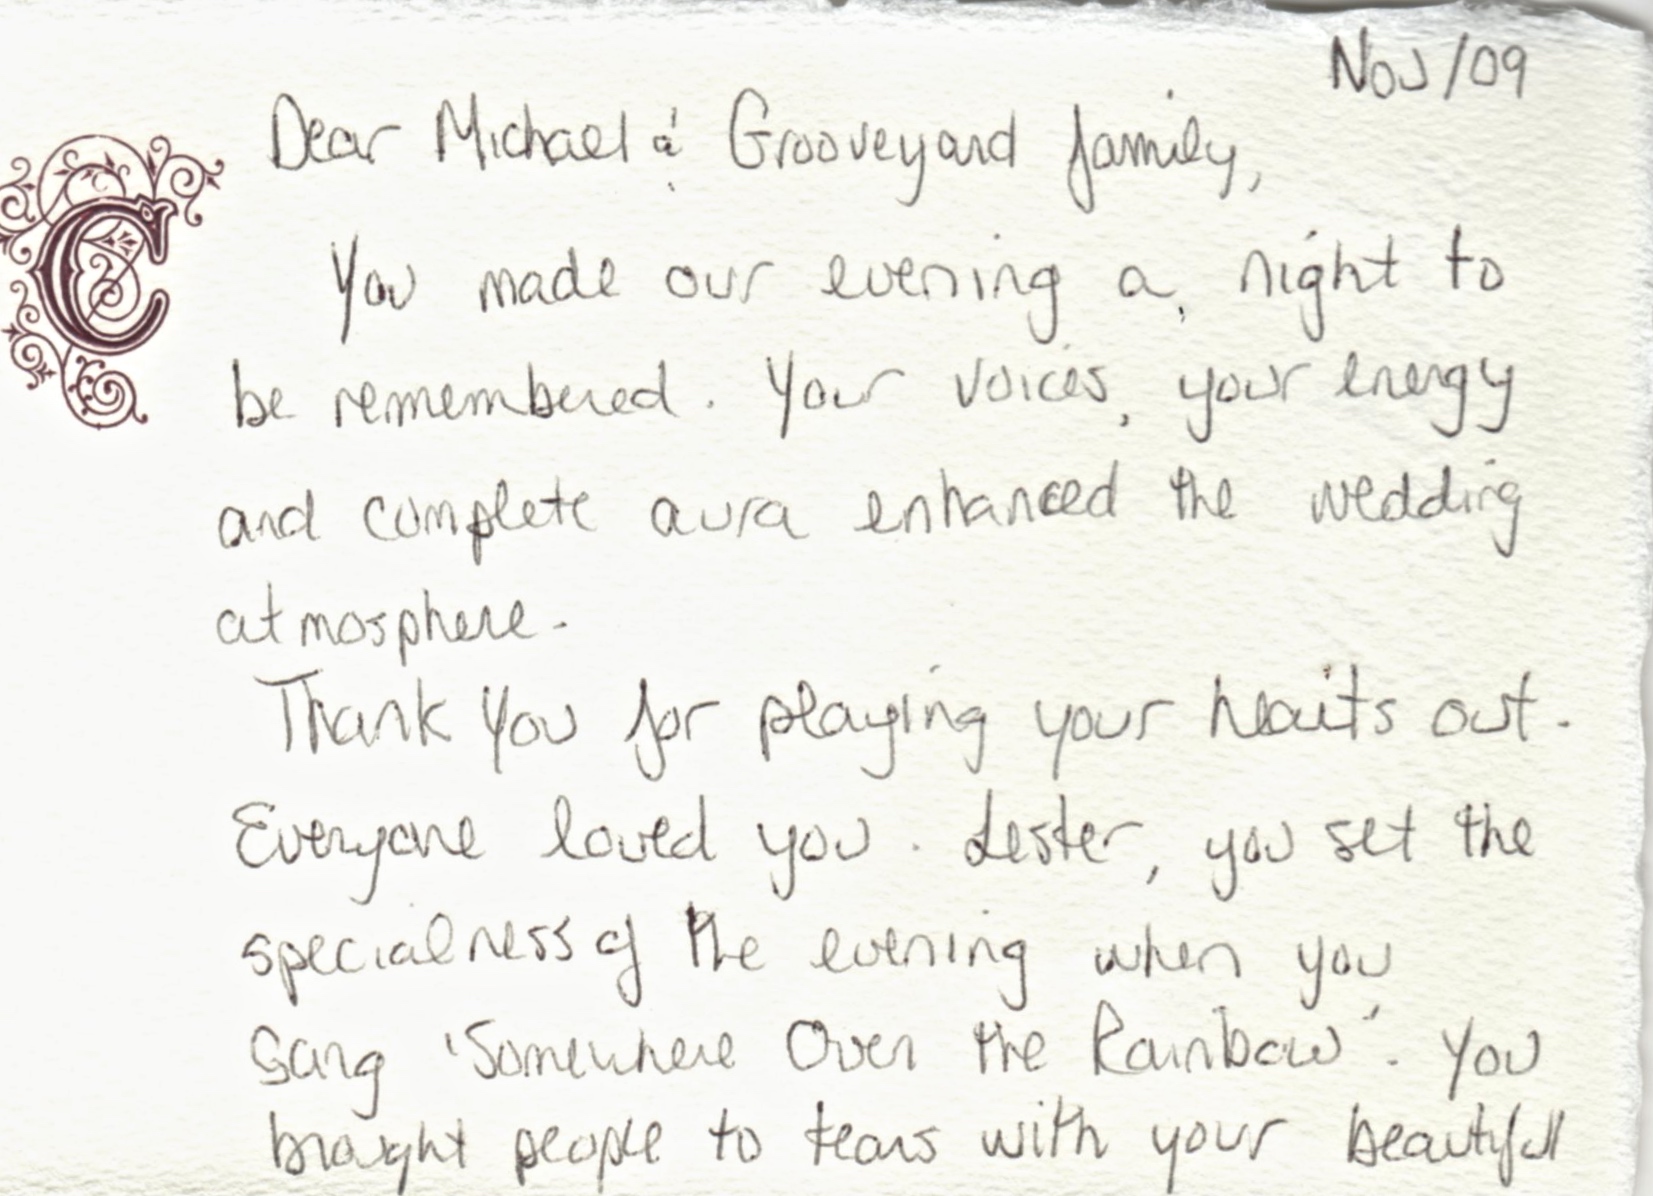 Nov/09
C
Dear Michael & Grooveyard family,
You made our evening a night to
be remembered. Your voices, your energy
and complete aura enhanced the wedding
atmosphere.
Thank you for playing your hearts out.
Everyone loved you. Lester, you set the
specialness of the evening when you
sang 'Somewhere Over the Rainbow'. You
brought people to tears with your beautiful